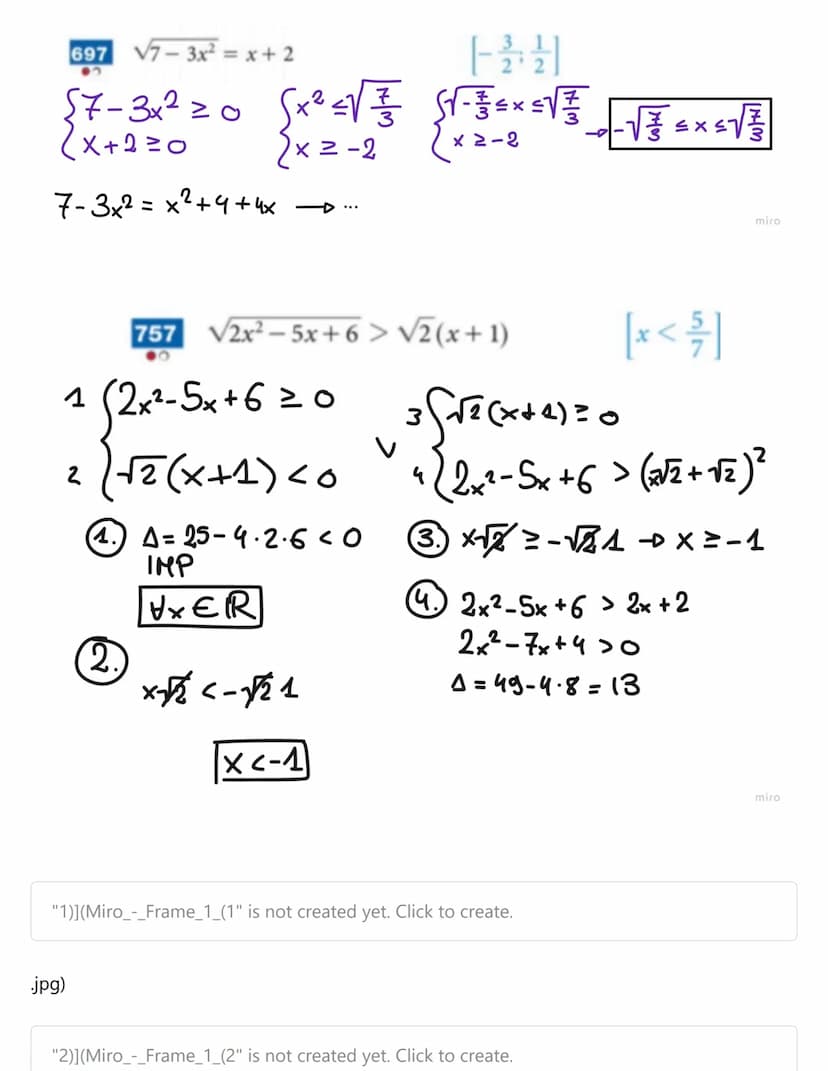 697 √7 − 3x² = x + 2 [−3/2; 1/2]
{7 − 3x² ≥ 0 {x² ≤ √7/3 {√−7/3 ≤ x ≤ √7/3
{x + 2 ≥ 0 {x ≥ −2 {x ≥ −2 → −√7/3 ≤ x ≤ √7/3
7 − 3x² = x² + 4 + 4x → ...
miro
757 √2x² − 5x + 6 > √2(x + 1) [x < 5/7]
1 {2x² − 5x + 6 ≥ 0 3 {√2(x+1) ≥ 0
2 {√2(x+1) < 0 ∨ 4 {2x² − 5x + 6 > (x√2 + √2)²
1. Δ = 25 − 4·2·6 < 0 3. x√2 ≥ −√2 1 → x ≥ −1
IMP
∀x ∈ ℝ 4. 2x² − 5x + 6 > 2x + 2
2x² − 7x + 4 > 0
2. x√2 < −√2 1 Δ = 49 − 4·8 = 13
x < −1
miro
"1)](Miro_-_Frame_1_(1" is not created yet. Click to create.
.jpg)
"2)](Miro_-_Frame_1_(2" is not created yet. Click to create.